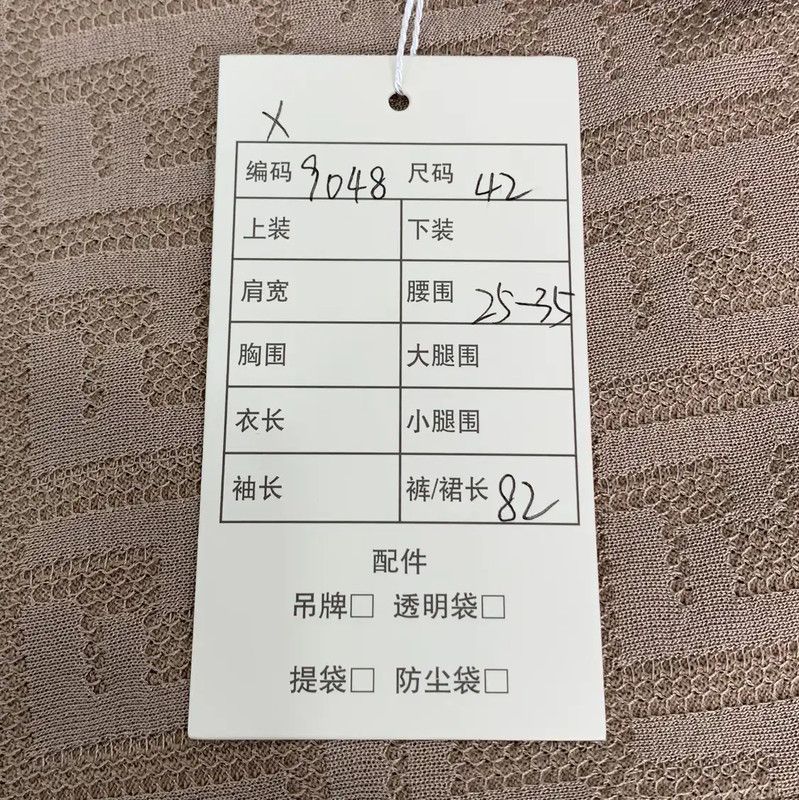 X
编码 9048 尺码 42
上装 下装
肩宽 腰围 25-35
胸围 大腿围
衣长 小腿围
袖长 裤/裙长 82
配件
吊牌□ 透明袋□
提袋□ 防尘袋□